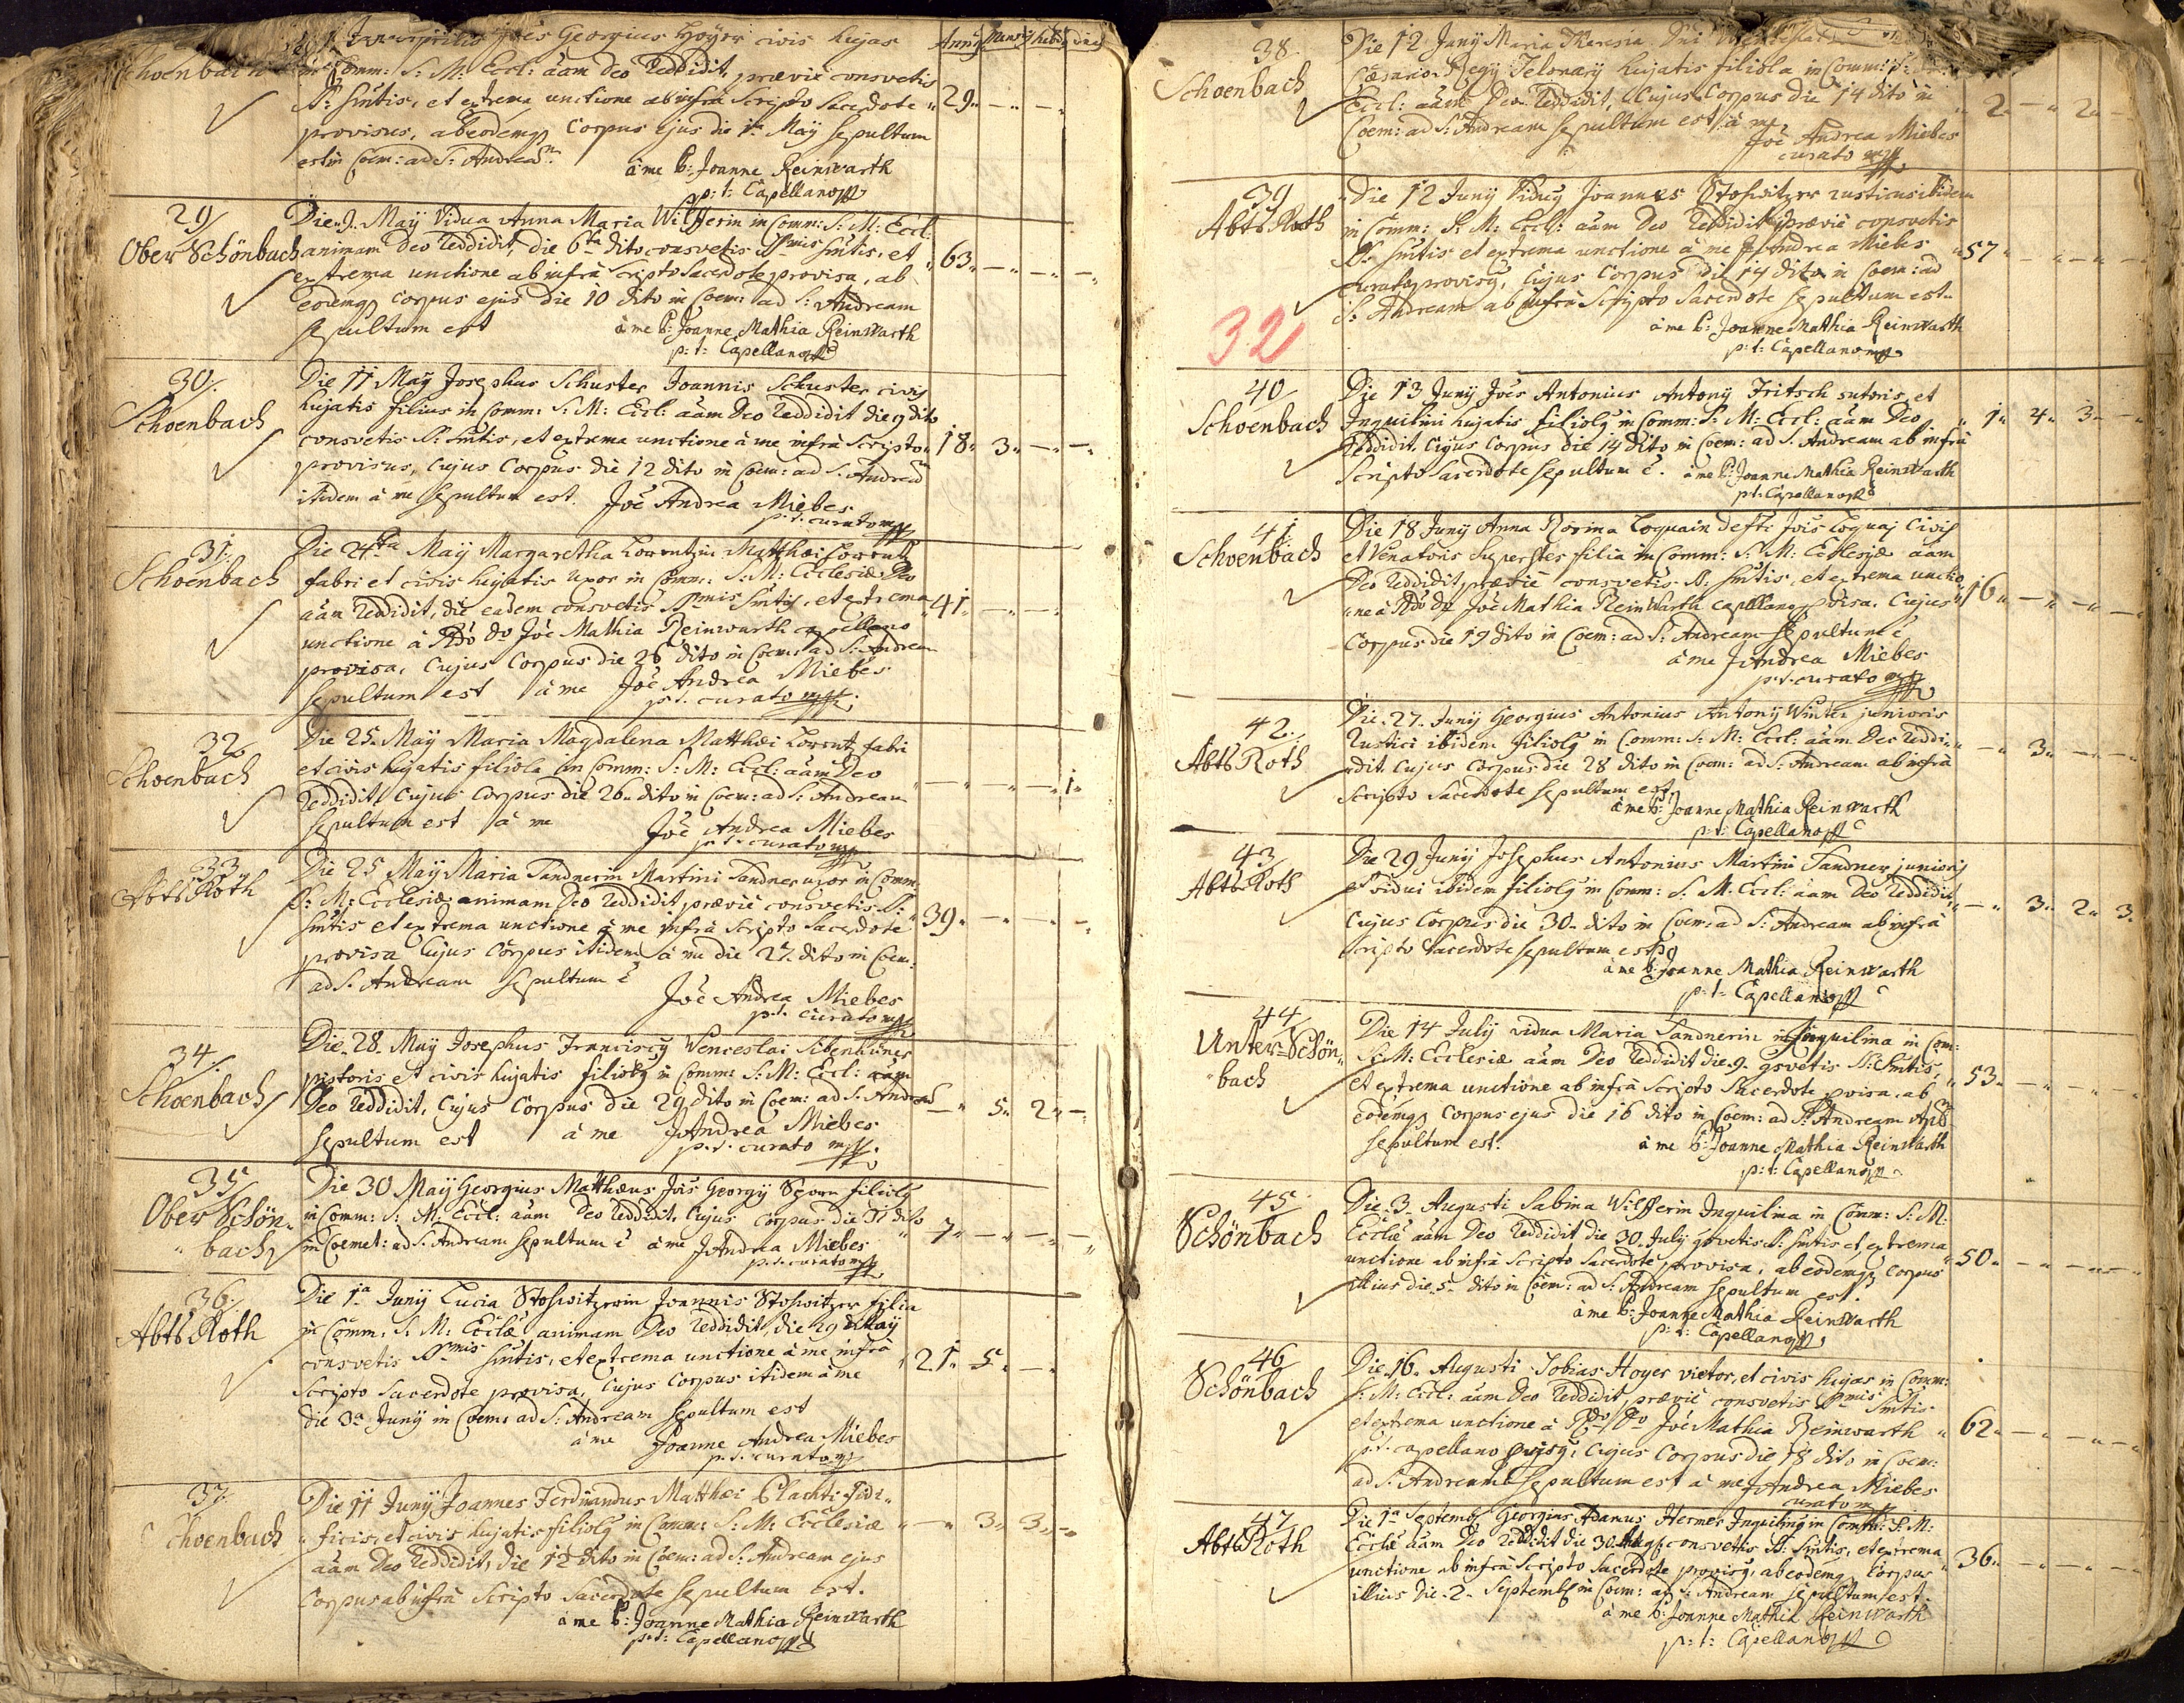 Aprilis Jões Georgius Hoyer civis hujas
Anni Mens: hebd: dies
Schoenbach in Comm: S: M: Eccl: aãm Deo Reddidit, præviè consvetis
SS: smtis, et extrema unctione ab infra Scripto Sacerdote 29
provisus, ab eodemq Corpus ejus die 1ma May sepultum
est in Coem: ad S: Andream.
à me P: Joanne Reinwarth
p: t: Capellano
29
Die 9. May Vidua Anna Maria Wilfferin in Comm: S: M: Eccl:
Ober Schönbach animam Deo Reddidit, die 6ta dito consvetis SSmis smtis, et 63
extrema unctione ab infra scripto Sacerdote provisa, ab
eodemq Corpus ejus die 10 dito in Coem: ad S: Andream
sepultum est à me P: Joanne Mathia Reinwarth
p: t: Capellano
30.
Die 11 May Josephus Schuster Joannis Schuster civis
Schoenbach hujatis filius in Comm: S: M: Eccl: aãm Deo Reddidit die 9 dito
consvetis SS: smtis, et extrema unctione à me infra Scripto 18 3
provisus, Cujus Corpus die 12 dito in Coem: ad S: Andream
itidem à me sepultum est. Joẽ Andrea Miebes
p. t. curato
31.
Die 24ta May Margaretha Lorentzin Matthæi Lorentz
Schoenbach fabri et civis hujatis uxor in Comm: S: M: Ecclesiæ Deo
aãm Reddidit, die eadem consvetis SSmis smtis, et extrema 41
unctione à Rdo Do Joẽ Mathia Reinwarth capellano
provisa, Cujus Corpus die 26 dito in Coem: ad S: Andream
sepultum est à me Joẽ Andrea Miebes
p. t. curato
32
Die 25. May Maria Magdalena Matthæi Lorentz fabri
Schoenbach et civis hujatis filiola in Comm: S: M: Eccl: aãm Deo
Reddidit, Cujus Corpus die 26 dito in Coem: ad S: Andream 1
sepultum est à me Joẽ Andrea Miebes
p. t. curato
33.
Die 25 May Maria Sandnerin Martini Sandner uxor in Comm:
Abts Roth S: M: Ecclesiæ animam Deo Reddidit, præviè consvetis SS:
smtis et extrema unctione à me infra Scripto Sacerdote 39
provisa Cujus Corpus itidem à me die 27. dito in Coem:
ad S: Andream sepultum ẽ
Joẽ Andrea Miebes
p. t. curato
34.
Die 28. May Josephus Franciscus Venceslai Sibenhüner
Schoenbach pistoris et civis hujatis filiolus in Comm: S: M: Eccl: aãm
Deo Reddidit, Cujus Corpus die 29 dito in Coem: ad S: Andream 5 2
sepultum est à me J Andrea Miebes
p. t. curato
35
Die 30 May Georgius Matthæus Jois Georgij filiolus
Ober Schön- in Comm: S: M: Eccl: aãm Deo Reddidit, Cujus Corpus die 31 dito 7
bach in Coemet: ad S: Andream sepultum ẽ à me J Andrea Miebes
p. t. curato
36
Die 1ma Junij Lucia Stoswitzerin Joannis Stoswitzer filia
Abts Roth in Comm: S: M: Ecclæ animam Deo Reddidit, die 29 May
consvetis SSmis smtis, et extrema unctione à me infra 21 5
Scripto Sacerdote provisa, Cujus Corpus itidem à me
die 3a Junij in Coem: ad S: Andream sepultum est
à me Joanne Andrea Miebes
p. t. curato
37.
Die 11 Junij Joannes Ferdinandus Matthæi Plachti fidi-
Schoenbach ficis, et civis hujatis filiolus in Comm: S: M: Ecclesiæ 3 3
aãm Deo Reddidit, die 12 dito in Coem: ad S: Andream ejus
Corpus ab infra Scripto Sacerdote sepultum est.
à me P: Joanne Mathia Reinwarth
p: t: Capellano
38.
Die 12 Junij Maria Theresia Dni
Schoenbach Cæsareo Regij Telonarij hujatis filiola in Comm: S:
Eccl: aãm Deo Reddidit, Cujus Corpus die 14 dito in 2 2
Coem: ad S: Andream sepultum est à me
Joẽ Andrea Miebes
curato
39
Die 12 Junij Viduus Joannes Stoswitzer rusticus ibidem
Abts Roth in Comm: S: M: Eccl: aãm Deo Reddidit, præviè consvetis
SS: smtis et extrema unctione à me J Andrea Miebes 57
curato provisus, Cujus Corpus die 14 dito in Coem: ad
S: Andream ab infra Scripto Sacerdote sepultum est.
32
à me P: Joanne Mathia Reinwarth
p: t: Capellano
40
Die 13 Junij Joẽs Antonius Antonij Fritsch sutoris, et
Schoenbach Inquilini hujatis filiolus in Comm: S: M: Eccl: aãm Deo 1 4 3
Reddidit, Cujus Corpus die 14 dito in Coem: ad S: Andream ab infra
Scripto Sacerdote sepultum ẽ. à me P: Joanne Mathia Reinwarth
p: t: Capellano
41
Die 18 Junij Anna Rosina Loquain defti Jois Loquaj Civis
Schoenbach et Venatoris superstes filia in Comm: S: M: Ecclesiæ aãm
Deo Reddidit, præviè consvetis SS: smtis, et extrema unctio-
ne à Rdo Do Joẽ Mathia Reinwarth capellano pvisa. Cujus 16
Corpus die 19 dito in Coem: ad S: Andream sepultum ẽ
à me J Andrea Miebes
p. t. curato
42.
Die 27. Junij Georgius Antonius Antonij Winter junioris
Abts Roth Rustici ibidem filiolus in Comm: S: M: Eccl: aãm Deo Reddi- 3
dit. Cujus Corpus die 28 dito in Coem: ad S: Andream ab infra
Scripto Sacerdote sepultum est.
à me P: Joanne Mathia Reinwarth
p: t: Capellano
43
Die 29 Junij Josephus Antonius Martini Sandner junioris
Abts Roth Vidui ibidem filiolus in Comm: S: M: Eccl: aãm Deo Reddidit, 3 2 3
Cujus Corpus die 30 dito in Coem: ad S: Andream ab infra
Scripto Sacerdote sepultum est
à me P: Joanne Mathia Reinwarth
p: t: Capellano
44
Die 14 Julij vidua Maria Sandnerin Inquilina in Com:
Unter-Schön- S: M: Ecclesiæ aãm Deo Reddidit die 9. gsvetis SS: smtis,
bach et extrema unctione ab infra Scripto Sacerdote pvisa, ab 53
eodemq Corpus ejus die 16 dito in Coem: ad S: Andream Ap:
sepultum est. à me P: Joanne Mathia Reinwarth
p: t: Capellano
45
Die 3 Augusti Sabina Wilfferin Inquilina in Comm: S: M:
Schönbach Ecclæ aãm Deo Reddidit die 30. July gsvetis SS: smtis et extrema
unctione ab infra Scripto Sacerdote provisa, ab eodemq Corpus 50
illius die 5 dito in Coem: ad S: Andream sepultum est.
à me P: Joanne Mathia Reinwarth
p: t: Capellano
46
Die 16. Augusti Tobias Hoyer vietor, et civis hujas in Comm:
Schönbach S: M: Eccl: aãm Deo Reddidit, præviè consvetis SSmis smtis
et extrema unctione à Rdo Do Joẽ Mathia Reinwarth 62
p. t. capellano pvisus, Cujus Corpus die 18 dito in Coem:
ad S: Andream sepultum est à me J Andrea Miebes
curato
47
Die 1a Septemb: Georgius Adamus Hermer Inquilinus in Comm: S: M:
Abts Roth Ecclæ aãm Deo Reddidit die 30. Aug: consvetis SS: smtis, et extrema
unctione ab infra Scripto Sacerdote provisus, ab eodemq Corpus 36
illius die 2 Septemb: in Coem: ad S: Andream sepultum est.
à me P: Joanne Mathia Reinwarth
p: t: Capellano